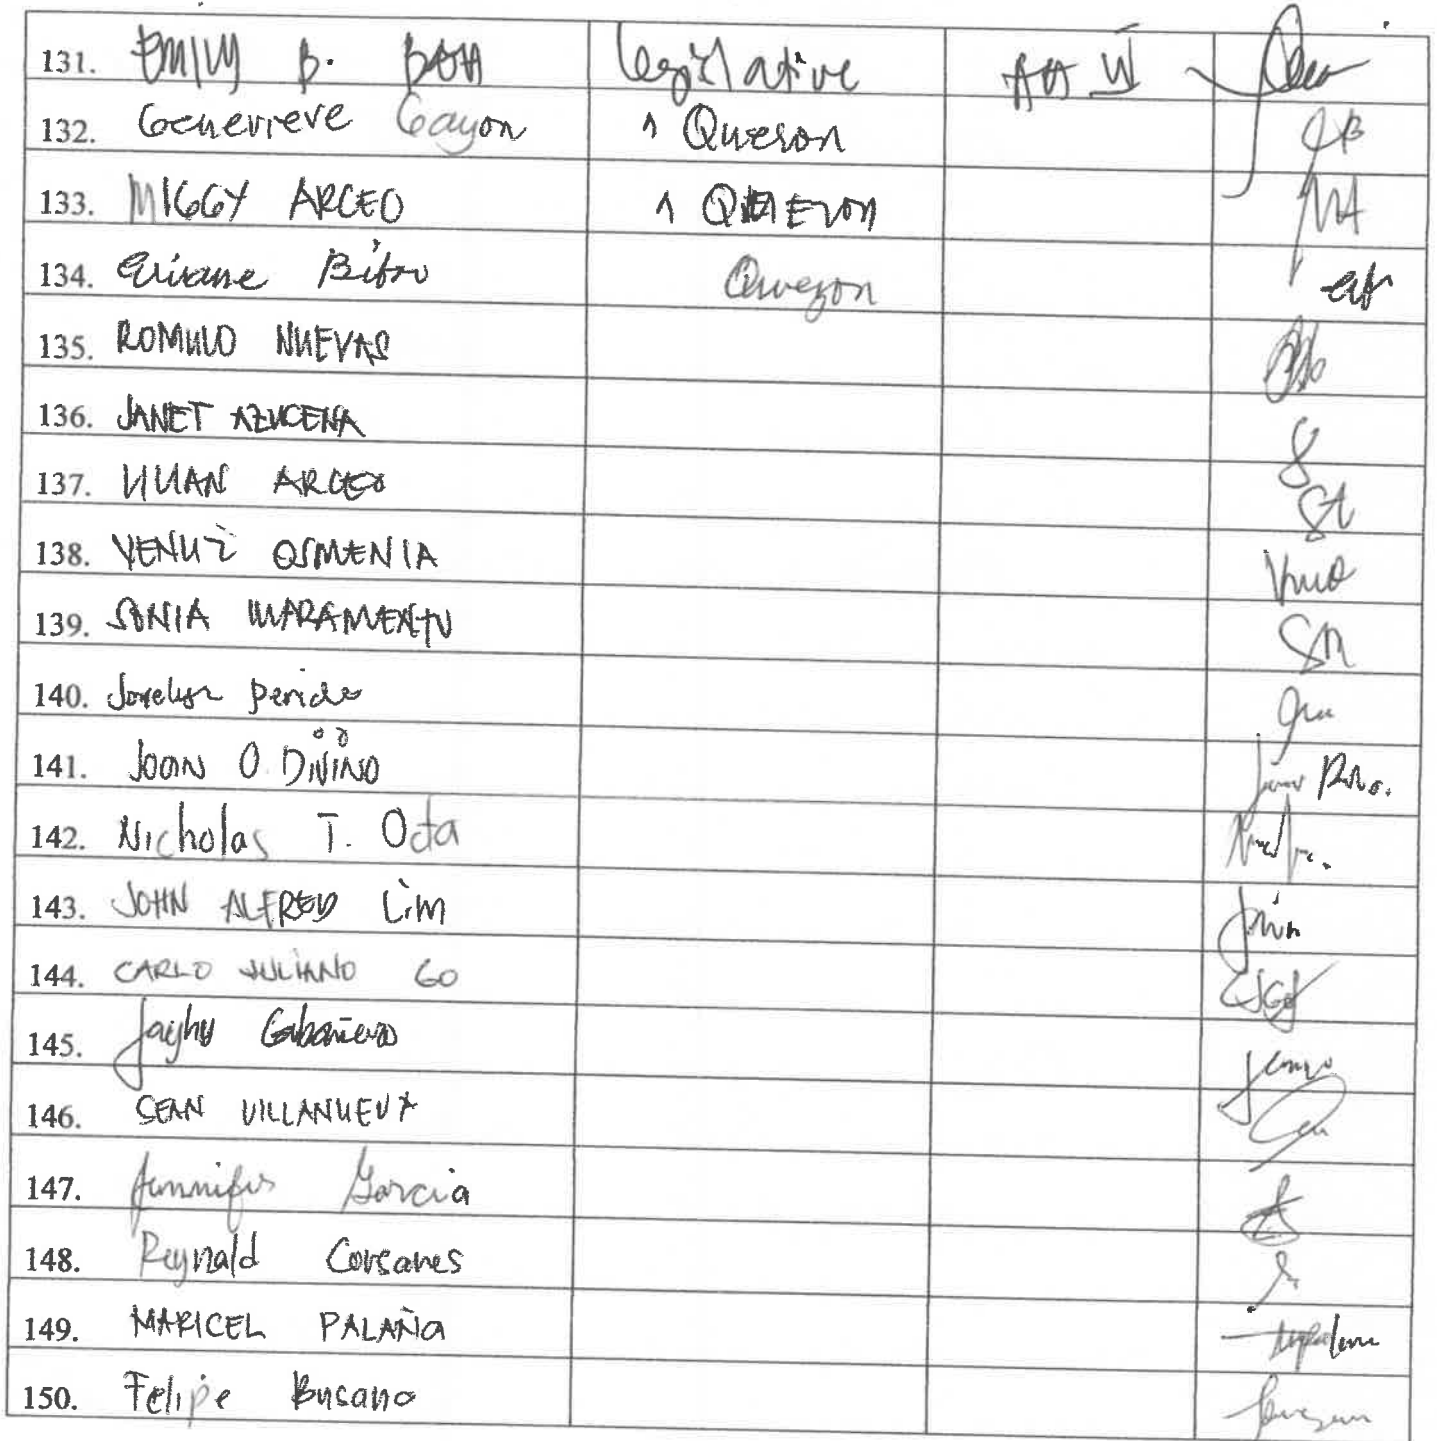 131. EMILY B. legislative AA II
132. Genevieve Gayon 1 Queson
133. MIGGY ARCEO 1 QUEEZON
134. Quezon
135. ROMULO NUEVAS
136. JANET AZUCENA
137. LILIAN ARCEO
138. VENUZ OSMENIA
139. SONIA MARAMENTO
140. Jovelyn Perido
141. Joan O. DiViNO
142. Nicholas T. Octa
143. JOHN ALFRED Lim
144. CARLO JULIANO GO
145. Cabañero
146. SEAN VILLANUEVA
147. Jennifer Garcia
148. Reynald Corsanes
149. MARICEL PALAÑA
150. Felipe Busano